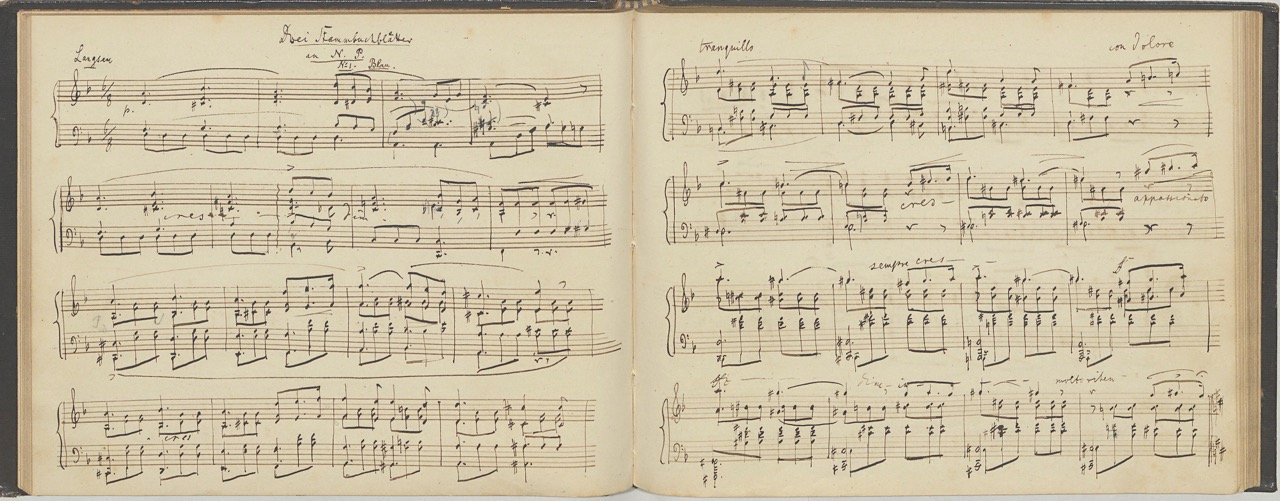 Zwei Stammbuchblätter
an N. P.
Langsam
No 1. Blau.
p.
cresc
cres
tranquillo
con dolore
cres
appassionato
sempre cres
f
dim - in
molto riten -